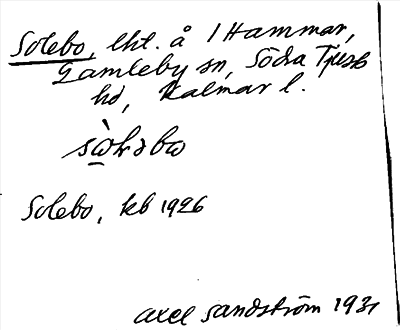 Solebo, lht. å 1 Hammar,
Gamleby sn, Södra Tjust
hd, Kalmar l.
Solebo, kb 1926
Axel Sandström 1931